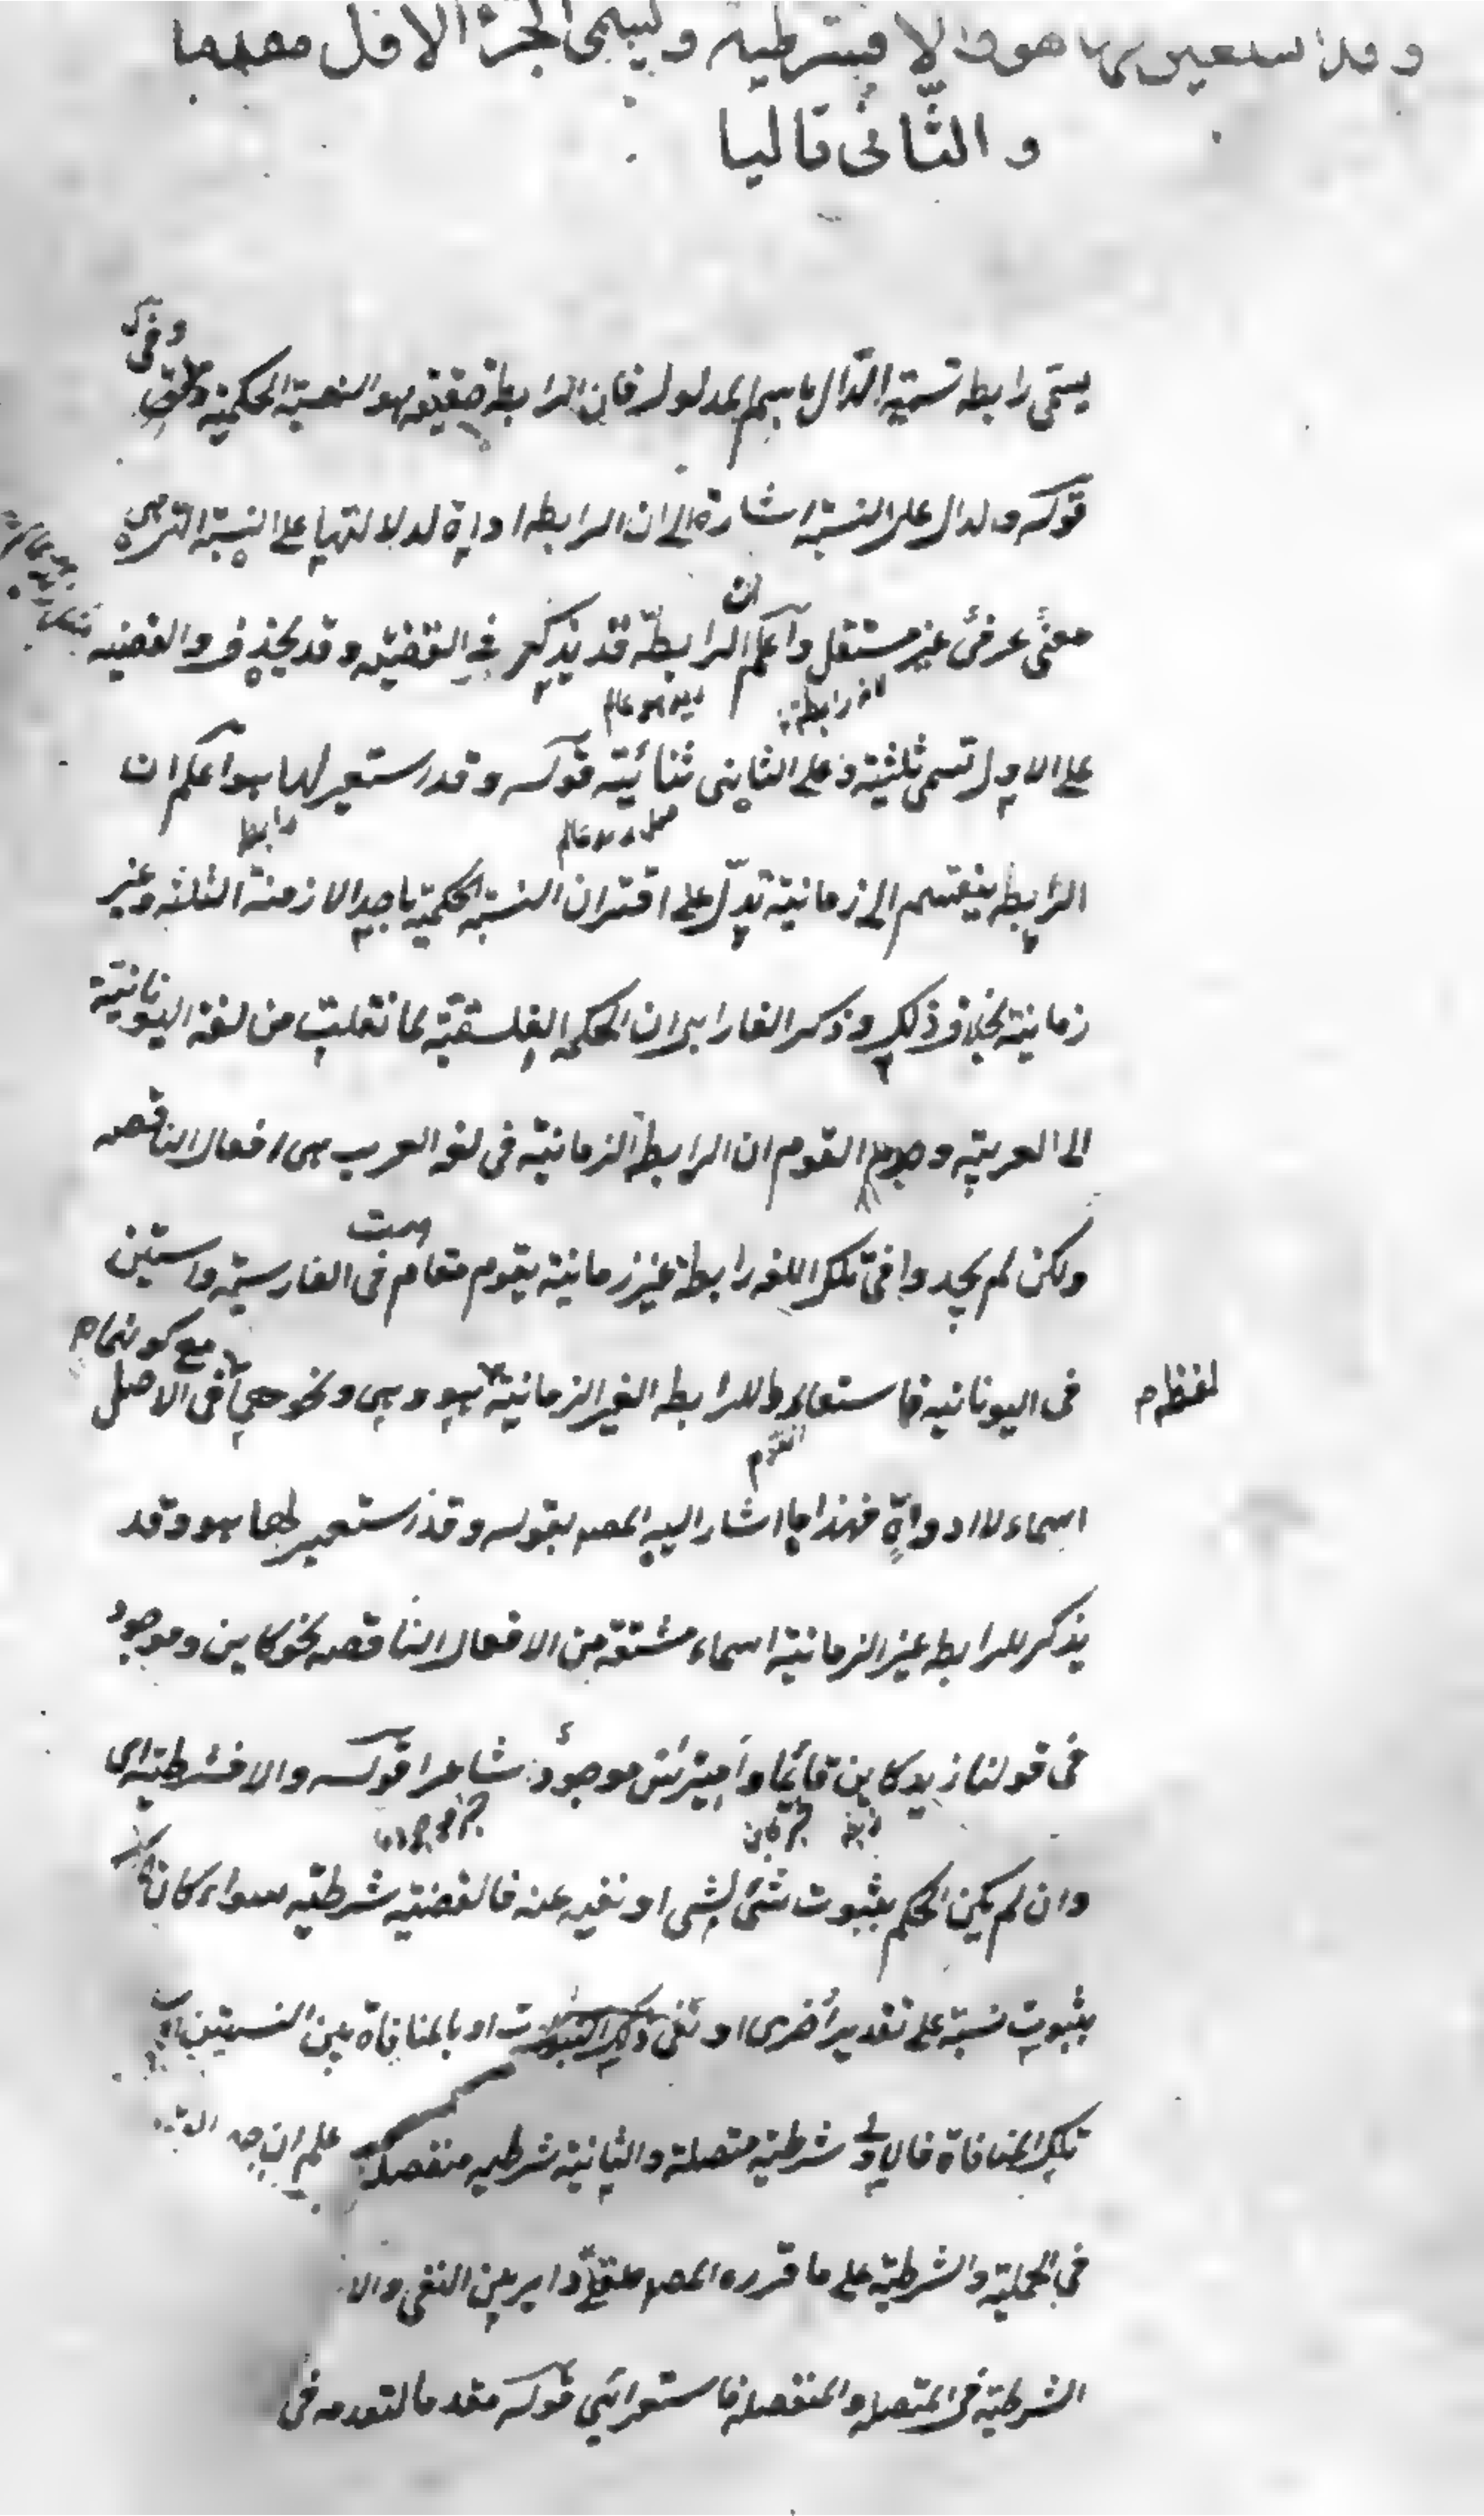 وقد استعير لها هو والا فشرطية ويسمى الجزء الاول مقدما
والثانى تاليا
يسمى رابطه تسمية الدال باسم المدلول فان الرابطة حقيقة هو النسبة الحكمية وفى
قوله والدال على النسبة اشارة الى ان الرابطه اداة لدلالتها على النسبة التى هى
معنى حرفى غير مستقل واعلم ان الرابطة قد يذكر فى القضية وقد يحذف والقضيه
زيد هو عالم
على الاول تسمى ثلثية وعلى الثانى ثنائية قوله وقد استعير لها هو اعلم ان
رابط
الرابطه ينقسم الى زمانية تدل على اقتران النسبة الحكمية باحد الازمنة الثلثه وغير
زمانية بخلاف ذلك وذكر الفارابى ان الحكمة الفلسفية لما نقلت من لغة اليونانية
الى العربية وجد القوم ان الرابطة الزمانية فى لغة العرب هى افعال الناقصه
ولكن لم يجدوا فى تلك اللغه رابطة غير زمانية يقوم مقام هست فى الفارسية واستين
فى اليونانيه فاستعاروا للرابطه الغير الزمانية لفظة هو وهى ونحوهما مع كونهما فى الاصل
القوم
اسماء لا ادواة فهذا ما اشار اليه المصـ بقوله وقد استعير لها هو وقد
يذكر للرابطه غير الزمانية اسماء مشتقة من الافعال الناقصه نحو كاين وموجود
فى قولنا زيد كاين قائما واميرس موجود شاعرا قوله والا فشرطية اى
وان لم يكن الحكم بثبوت شىء لشى او نفيه عنه فالقضية شرطيه سواء كان
بثبوت نسبة على تقدير اخرى او نفى ذلك الثبوت او بالمنافاة بين النسبتين او
تلك المنافاة فالاولى شرطية متصلة والثانية شرطيه منفصلة
فى الحملية والشرطية على ما قرره المصـ عقلى داير بين النفى والا
الشرطية فى المتصله والمنفصلة فاستقرائى قوله مقدما لتقدمه فى